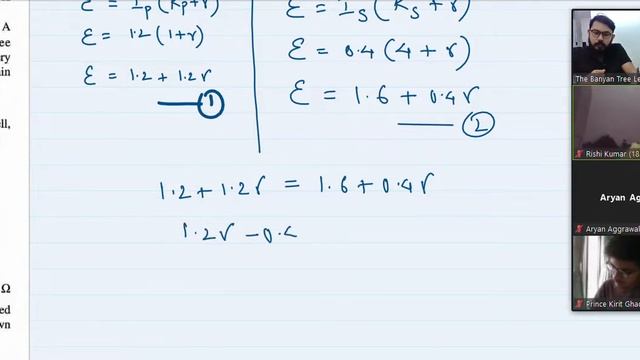 A
ee
ry
in
ll,
Ω
ed
wn
ε = Ip(Rp+r)
ε = 1.2(1+r)
ε = 1.2+1.2r
1
ε = Is(Rs+r)
ε = 0.4(4+r)
ε = 1.6+0.4r
2
1.2+1.2r = 1.6+0.4r
1.2r -0.4
The Banyan Tree Le
Rishi Kumar (18
Aryan Ag
Aryan Aggrawal
Prince Kirit Ghad